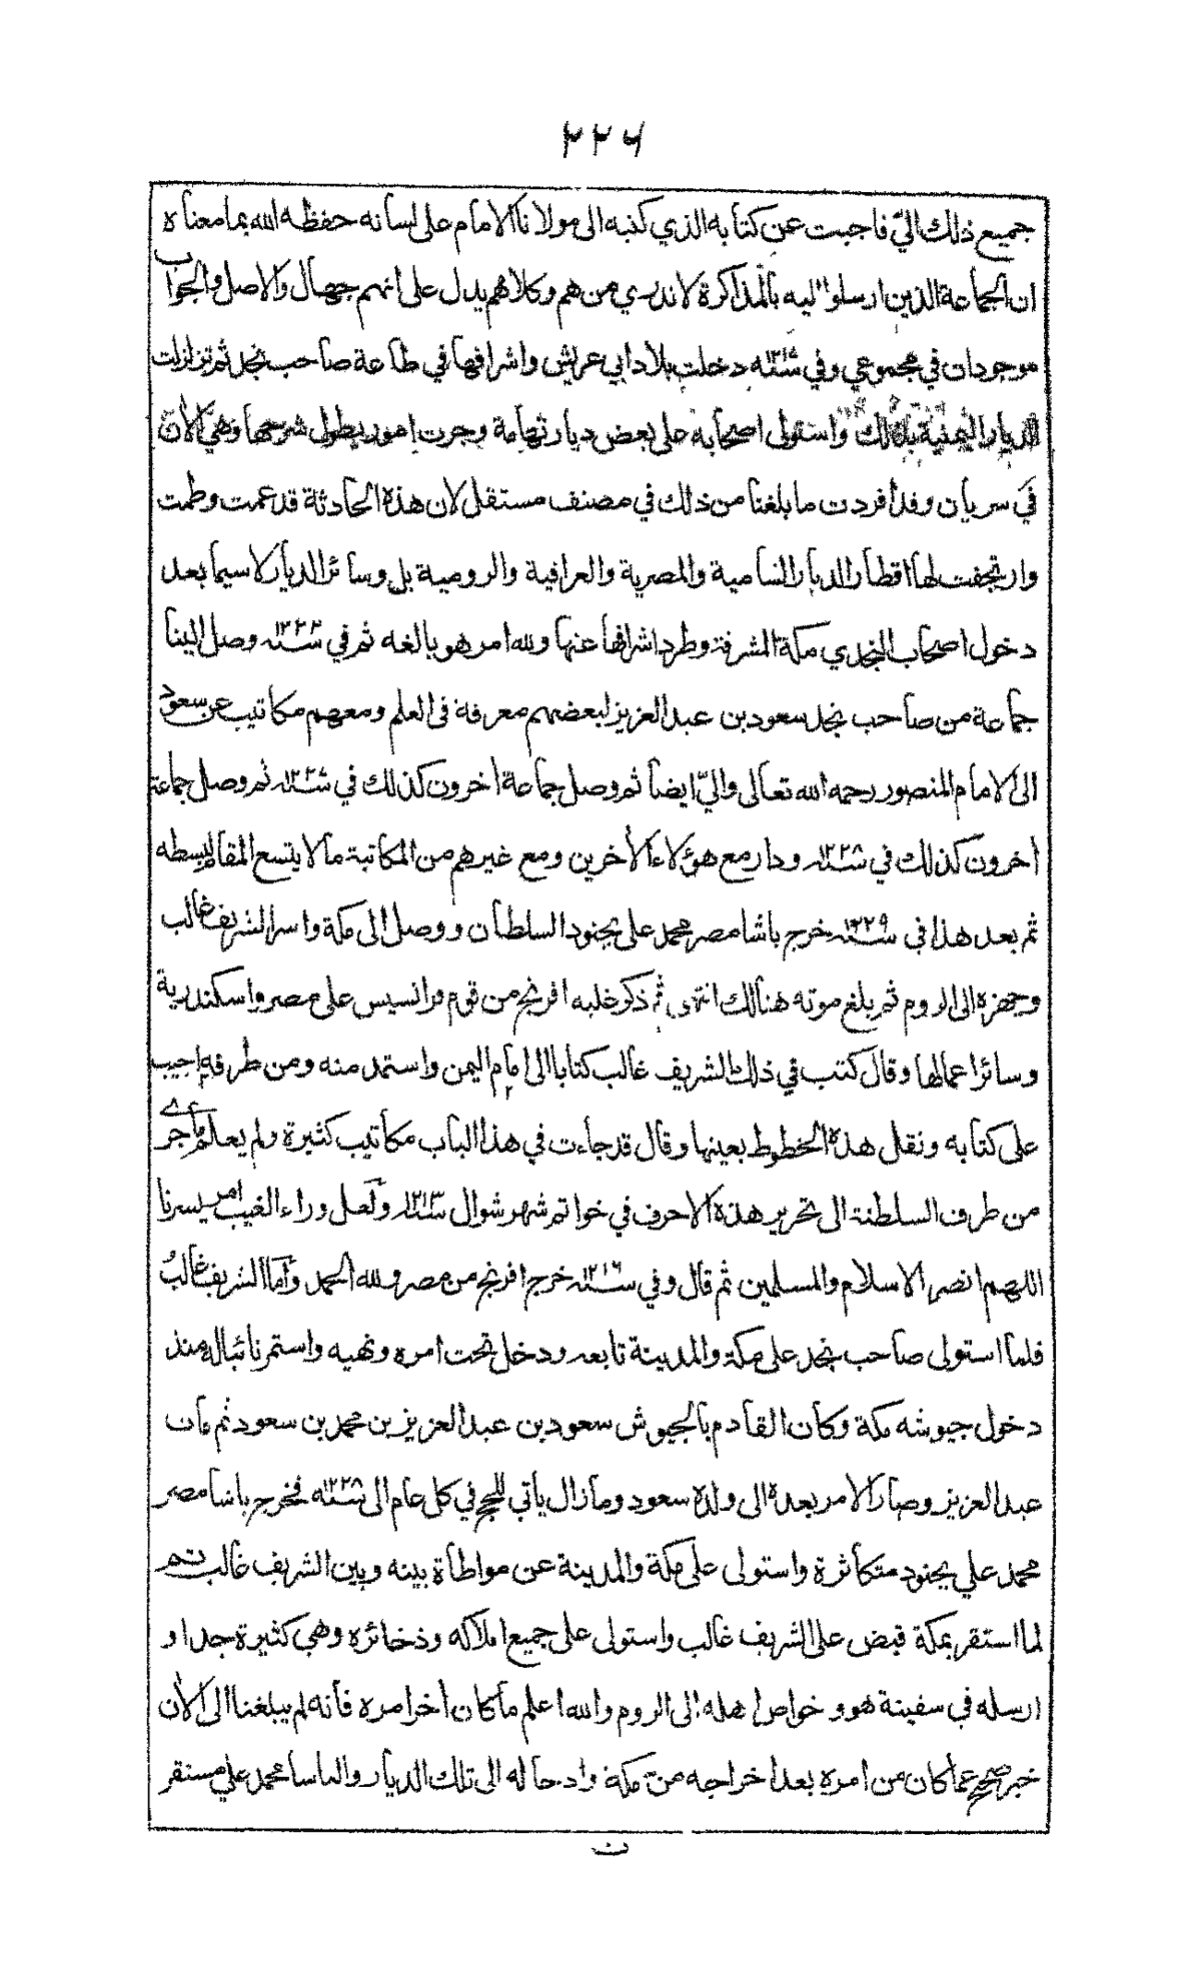 ٢٢٦
جميع ذلك اليّ فاجبت عن كتابه الذي كتبه الى مولانا الامام على لسانه حفظه الله بما معناه
ان الجماعة الذين ارسلوا اليه بالمذاكرة لا ندري من هم وكلامهم يدل على انهم جهال والاصل والجواب
موجودان في مجموعي وفي سنة ١٢١٥ دخلت بلاد ابي عريش واشرافها في طاعة صاحب نجد ثم تزلزلت
الديار اليمنية بذلك واستولى اصحابه على بعض ديار تهامة وجرت امور يطول شرحها وهي الان
في سريان وقد أفردت ما بلغنا من ذلك في مصنف مستقل لان هذه الحادثة قد عمت وطمت
وارتجفت لها اقطار الديار الشامية والمصرية والعراقية والرومية بل وسائر الديار لا سيما بعد
دخول اصحاب النجدي مكة المشرفة وطرد اشرافها عنها ولله امر هو بالغه ثم في سنة ١٢٢٢ وصل الينا
جماعة من صاحب نجد سعود بن عبد العزيز لبعضهم معرفة في العلم ومعهم مكاتيب عن سعود
الى الامام المنصور رحمه الله تعالى واليّ ايضا ثم وصل جماعة اخرون كذلك في سنة ثم وصل جماعة
أخرون كذلك في سنة ١٢٢٨ ودار مع هؤلاء الأخرين ومع غيرهم من المكاتبة ما لا يتسع المقام لبسطه
ثم بعد هذا في سنة ١٢٢٩ خرج باشا مصر محمد علي بجنود السلطان ووصل الى مكة واسر الشريف غالب
وجهزه الى الروم ثم بلغ موته هنالك انتهى ثم ذكر غلبه افرنج من قوم فرانسيس على مصر واسكندرية
وسائر اعمالها وقال كتب في ذلك الشريف غالب كتابا الى امام اليمن واستمد منه ومن طرفه اجيب
على كتابه ونقل هذه الخطوط بعينها وقال قد جاءت في هذا الباب مكاتيب كثيرة ولم يعلم ما جرى
من طرف السلطنة الى تحرير هذه الاحرف في خواتم شهر شوال سنة ١٢١٣ ولعل وراء الغيب امر يسرنا
اللهم انصر الاسلام والمسلمين ثم قال وفي سنة ١٢١٦ خرج افرنج من مصر ولله الحمد وأما الشريف غالب
فلما استولى صاحب نجد على مكة والمدينة تابعه ودخل تحت امره ونهيه واستمر نائبا له منذ
دخول جيوشه مكة وكان القادم بالجيوش سعود بن عبد العزيز بن محمد بن سعود ثم مات
عبد العزيز وصار الامر بعده الى ولده سعود وما زال يأتي للحج في كل عام الى سنة ١٢٢٨ فخرج باشا مصر
محمد علي بجنود متكاثرة واستولى على مكة والمدينة عن مواطأة بينه وبين الشريف غالب ثم
لما استقر بمكة قبض على الشريف غالب واستولى على جميع املاكه وذخائره وهي كثيرة جدا و
ارسله في سفينة هو و خواص اهله الى الروم والله اعلم ما كان أخر امره فانه لم يبلغنا الى الان
خبر صحيح عما كان من امره بعد اخراجه من مكة وادخاله الى تلك الديار والباسا محمد علي مستقر
ت